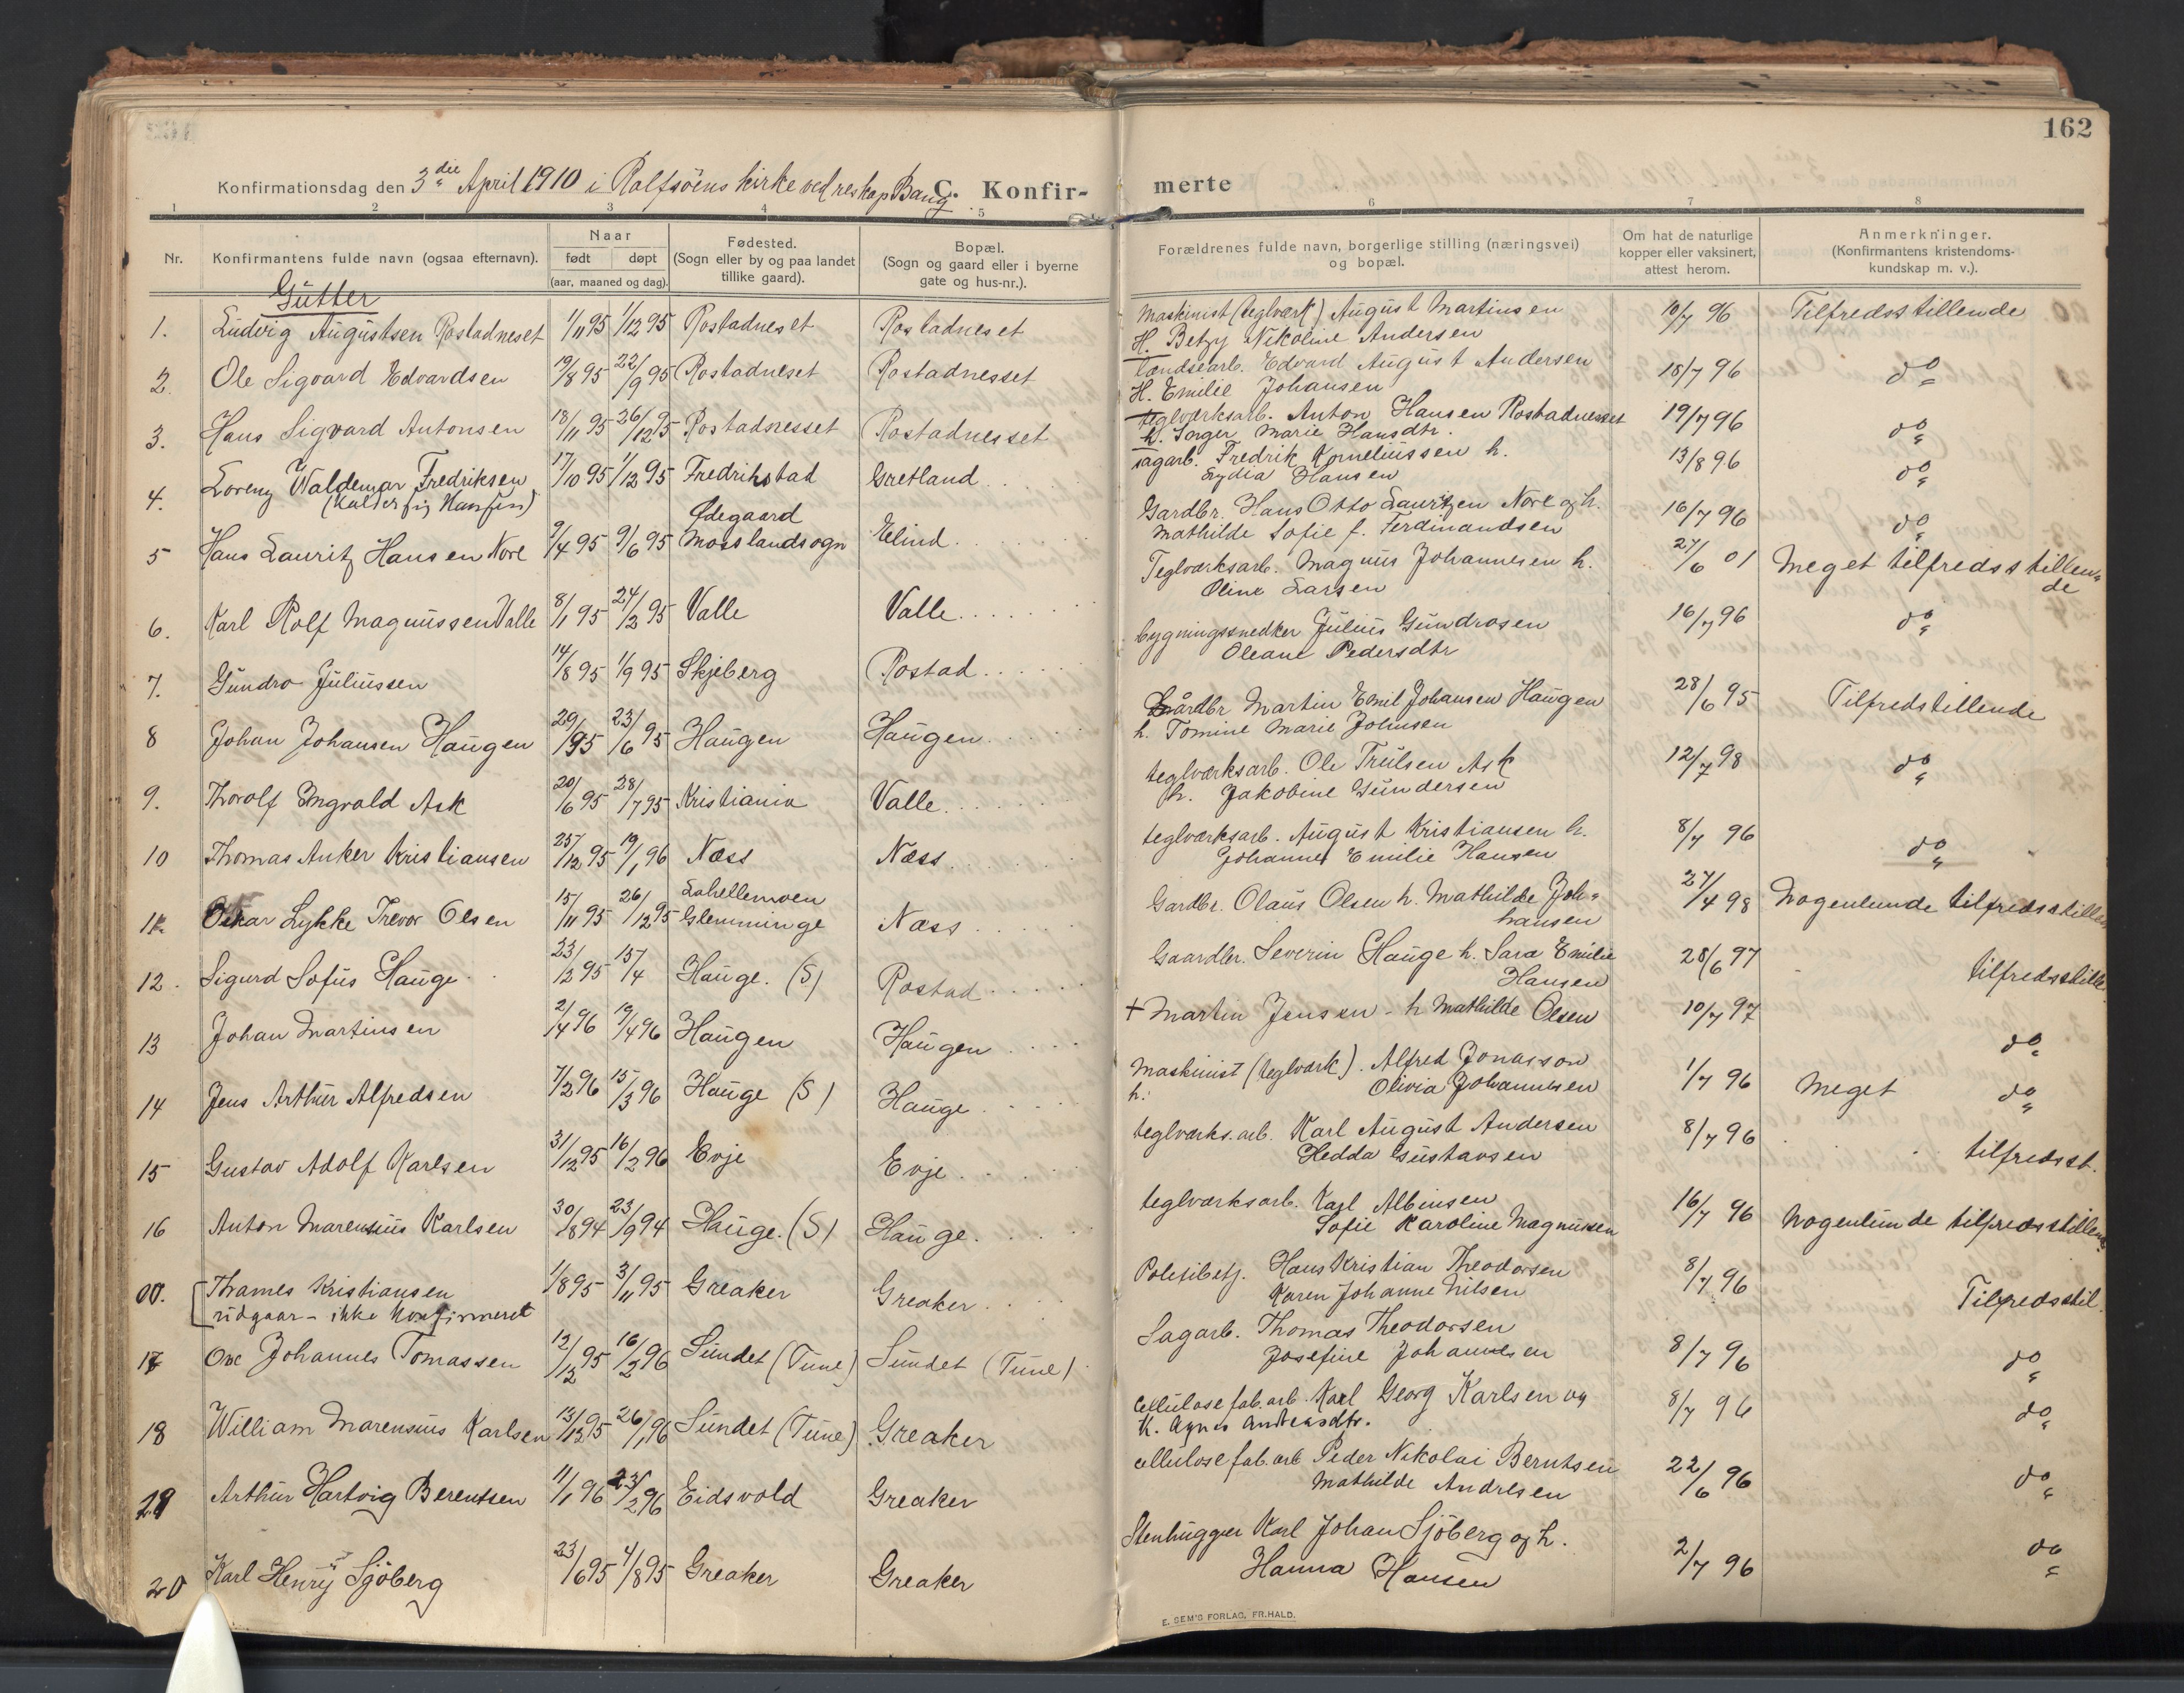 162
Konfirmationsdag den 3die April 1910 i Rolfsöens kirke ved reskap Bang C. Konfir-
merte
1 2 3 4 5
6 7 8
Nr. Konfirmantens fulde navn (ogsaa efternavn). Naar født døpt (aar, maaned og dag). Fødested. (Sogn eller by og paa landet tillike gaard). Bopæl. (Sogn og gaard eller i byerne gate og hus-nr.).
Forældrenes fulde navn, borgerlige stilling (næringsvei) og bopæl. Om hat de naturlige kopper eller vaksinert, attest herom. Anmerkninger. (Konfirmantens kristendoms- kundskap m. v.).
Gutter
1. Ludvig Augustsen Rostadneset 1/11 95 1/12 95 Rostadneset Rostadneset
Maskinist (teglværk) August Martinsen 10/7 96 Tilfredsstillende
H. Betzy Nikoline Andersen
2. Ole Sigvard Edvardsen 19/8 95 22/9 95 Rostadneset Rostadnesset
Lændsearb. Edvard August Andersen 18/7 96 do
H. Emilie Johansen
3. Hans Sigvard Antonsen 18/11 95 26/12 95 Rostadnesset Rostadnesset
teglværksarb. Anton Hansen Rostadnesset 19/7 96 do
h. Inger Marie Hansdtr.
4. Lorenz Waldemar Fredriksen 17/10 95 1/12 95 Fredrikstad Gretland
(kalder sig Hansen)
sagarb. Fredrik Korneliussen h. 13/8 96 do
Lydia Hansen
5 Hans Lauritz Hansen Nore 9/4 95 9/6 95 Ødegaard Mosslandsogn Elind
Gardbr. Hans Otto Lauritzen Nore og h. 16/7 96 do
Mathilde Sofie f. Ferdinandsen
6. Karl Rolf Magnussen Valle 8/1 95 24/2 95 Valle Valle
Teglværksarb. Magnus Johannesen h. 27/6 01 Meget tilfredsstillende
Oline Larsen
7. Gundro Juliussen 14/8 95 1/9 95 Skjeberg Rostad
bygningssnedker Julius Gundrosen 16/7 96 do
Oleane Pedersdtr
8 Johan Johansen Haugen 29/1 95 23/6 95 Haugen Haugen
Gårdbr Martin Emil Johansen Haugen 28/6 95 Tilfredstillende
h. Tomine Marie Johnsen
9. Thorolf Ingvald Ask 20/6 95 28/7 95 Kristiania Valle
teglværksarb. Ole Trulsen Ask 12/7 98 do
h. Jakobine Gundersen
10 Thomas Anker Kristiansen 25/12 95 19/1 96 Næss Næss
teglværksarb. August Kristiansen h. 8/7 96 do
Johanne Emilie Hansen
11. Oskar Lykke Trevor Olsen 15/11 95 26/12 95 Lahellemoen Glemminge Næss
Gardbr. Olaus Olsen h. Mathilde Johansen 27/4 98 Nogenlunde tilfredsstillen
12. Sigurd Sofus Hauge 23/12 95 15/4 Hauge. (S) Rostad
Gaardbr. Severin Hauge h. Sara Emilie 28/6 97 tilfredsstille
Hansen
13 Johan Martinsen 2/4 96 19/4 96 Haugen Haugen
+ Martin Jensen - h Mathilde Olsen 10/7 97 do
14 Jens Arthur Alfredsen 7/2 96 15/3 96 Hauge (S) Hauge
Maskinist (teglværk). Alfred Jonasson 1/7 96 Meget do
h. Olivia Johannesen
15 Gustav Adolf Karlsen 31/12 95 16/2 96 Evje Evje
teglværks.arb. Karl August Andersen 8/7 96 tilfredsst.
Hedda Gustavsen
16 Anton Marensius Karlsen 30/8 94 23/9 94 Hauge. (S) Hauge
teglværksarb. Karl Albinsen 16/7 96 Nogenlunde tilfredsstillen
Sofie Karoline Magnussen
00. Thames Kristiansen 1/8 95 3/11 95 Greaker Greaker
udgaar - ikke konfirmeret
Politibetj. Hans Kristian Theodorsen 8/7 96 Tilfredsstil.
Karen Johanne Nilsen
17 Ove Johannes Tomassen 12/12 95 16/2 96 Sundet (Tune) Sundet (Tune)
Sagarb. Thomas Theodorsen 8/7 96 do
Josefine Johannesen
18 William Marensius Karlsen 13/12 95 26/1 96 Sundet (Tune) Greaker
Cellulosefab.arb. Karl Georg Karlsen og 8/7 96 do
h. Agnes Andreasdtr.
19 Arthur Hartvig Berentsen 11/1 96 23/2 96 Eidsvold Greaker
cellulosefab.arb Peder Nikolai Berntsen 22/6 96 do
Mathilde Andresen
20 Karl Henry Sjöberg 23/6 95 4/8 95 Greaker Greaker
Stenhugger Karl Johan Sjöberg og h. 2/7 96 do
Hanna Hansen
E. SEM'S FORLAG, FR.HALD.